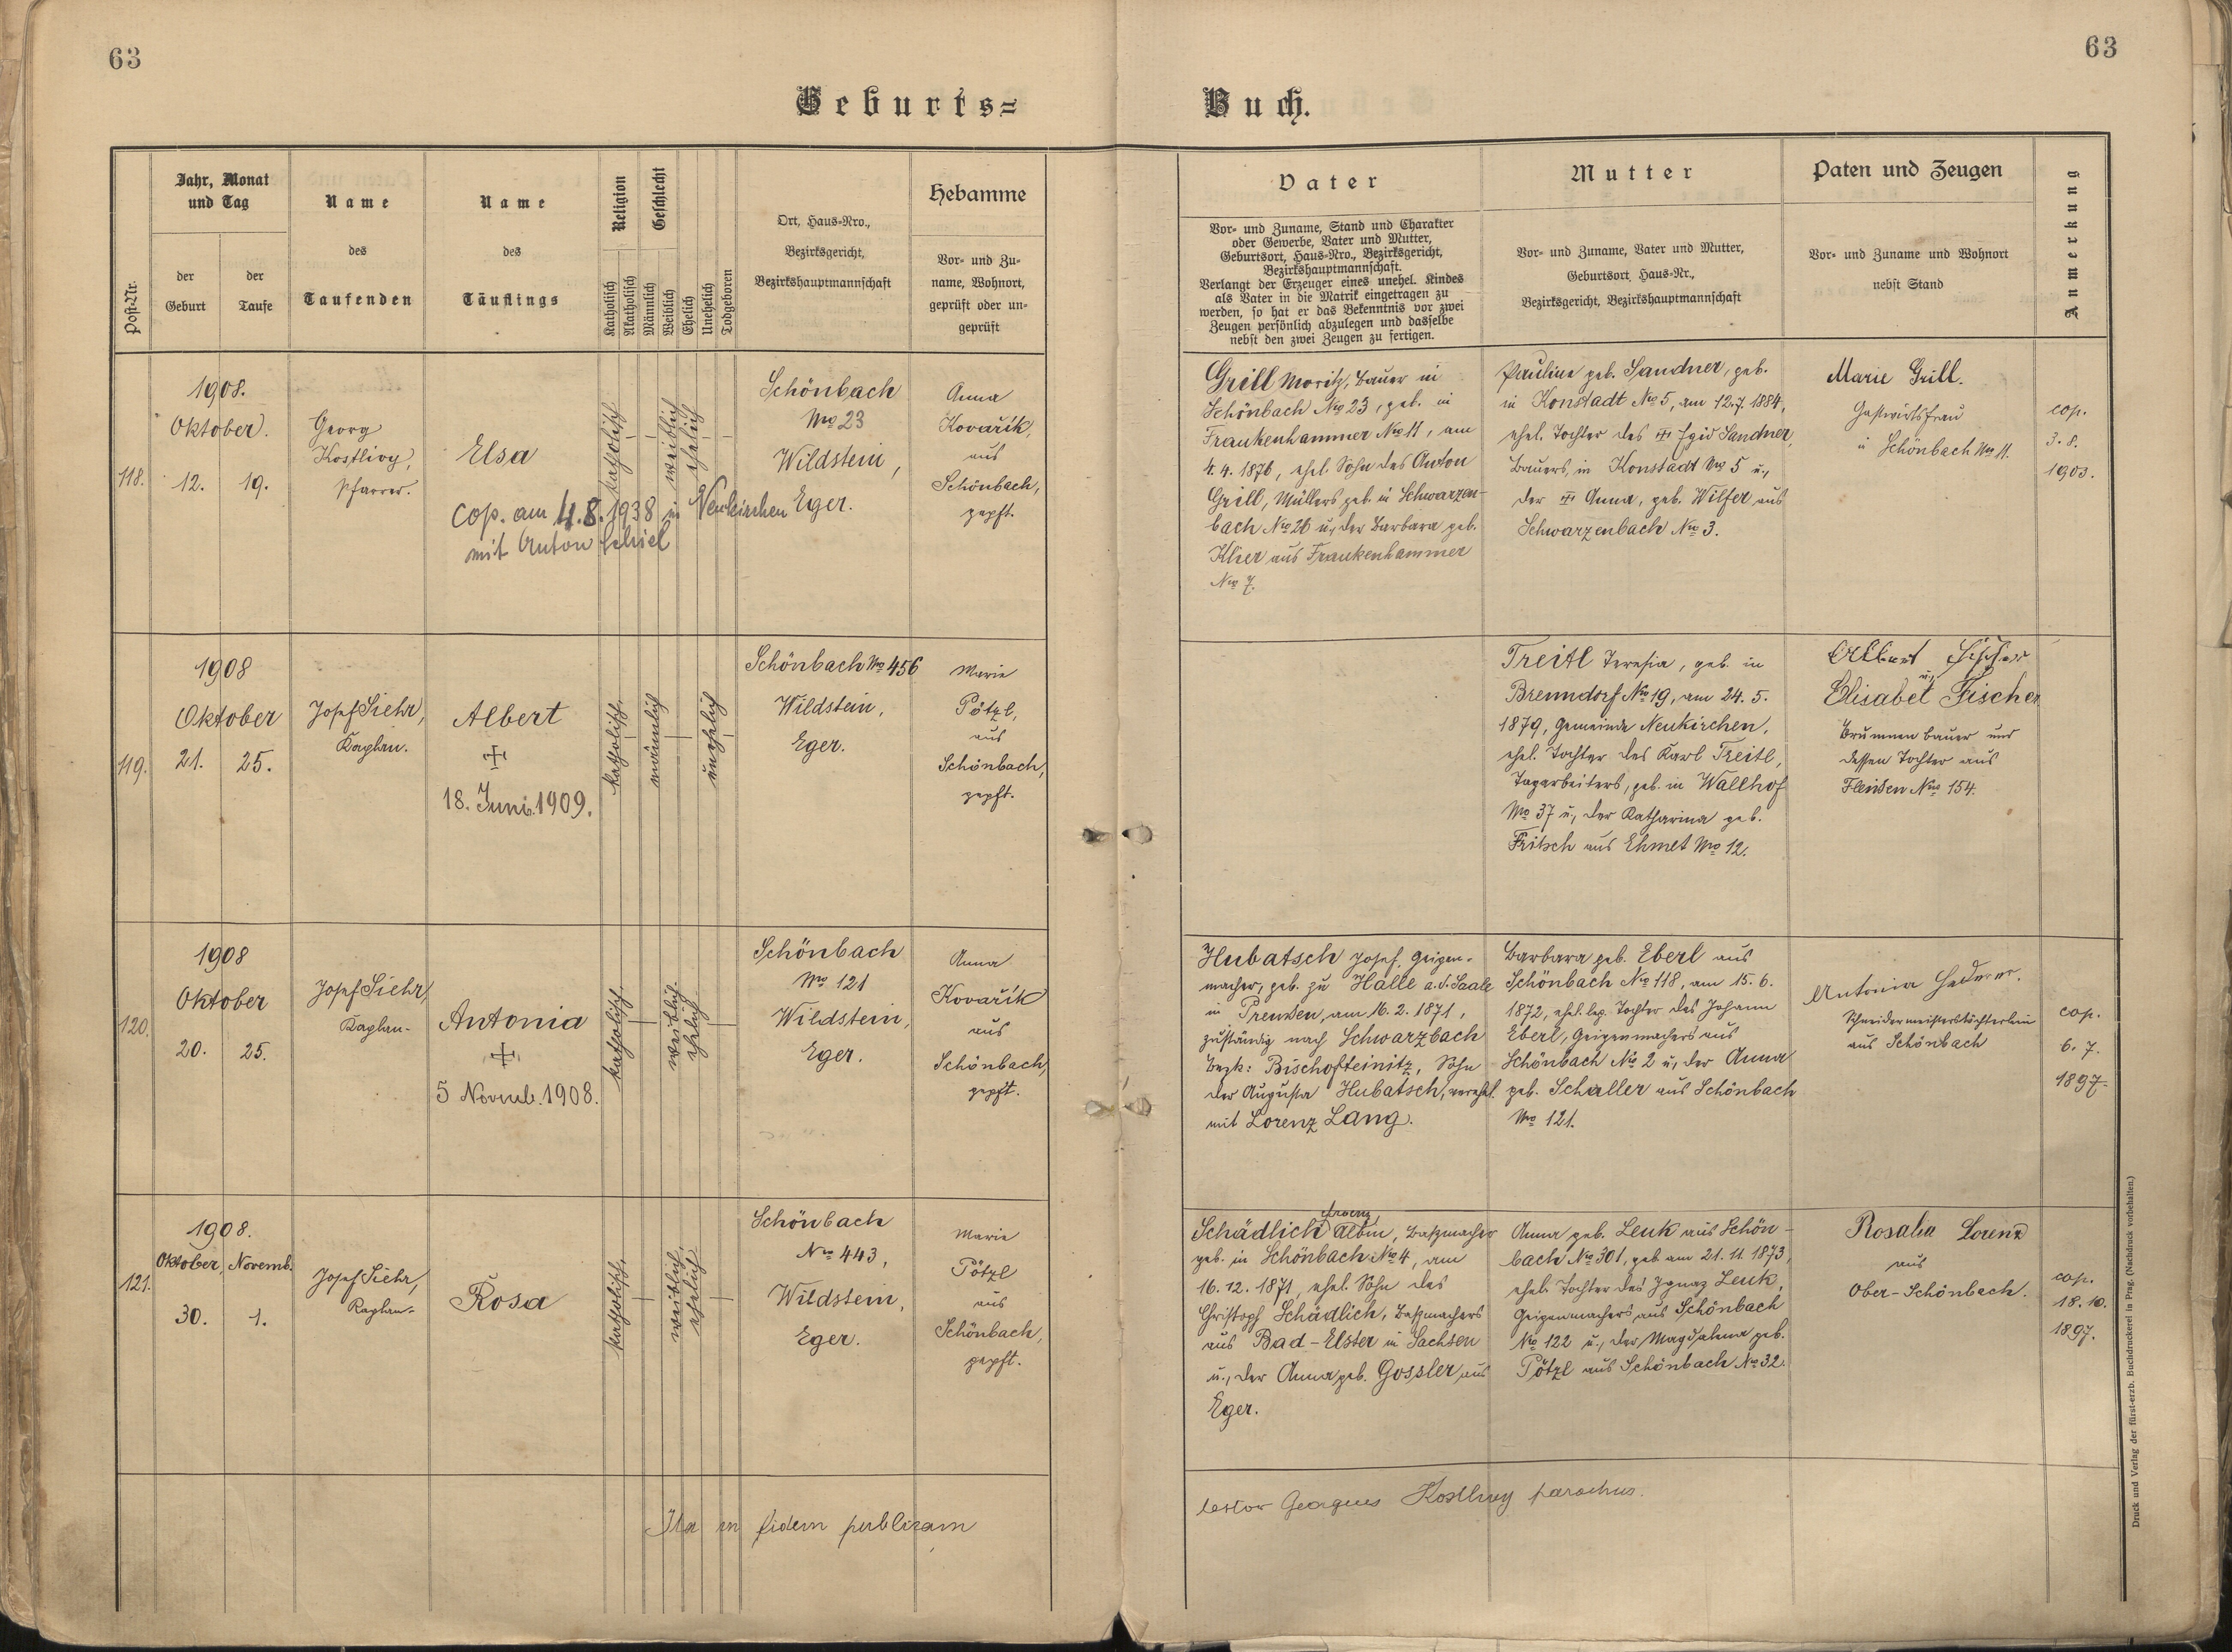 63
63
Geburts=
Buch.
Post-Nr.
Jahr, Monat
und Tag
der
Geburt
der
Taufe
Name
des
Taufenden
Name
des
Täuflings
Religion
Katholisch
Akatholisch
Geschlecht
Männlich
Weiblich
Ehelich
Unehelich
Todgeboren
Ort, Haus-Nro.,
Bezirksgericht,
Bezirkshauptmannschaft
Hebamme
Vor- und Zu-
name, Wohnort,
geprüft oder un-
geprüft
Vater
Vor- und Zuname, Stand und Charakter
oder Gewerbe, Vater und Mutter,
Geburtsort, Haus-Nro., Bezirksgericht,
Bezirkshauptmannschaft.
Verlangt der Erzeuger eines unehel. Kindes
als Vater in die Matrik eingetragen zu
werden, so hat er das Bekenntnis vor zwei
Zeugen persönlich abzulegen und dasselbe
nebst den zwei Zeugen zu fertigen.
Mutter
Vor- und Zuname, Vater und Mutter,
Geburtsort, Haus-Nr.,
Bezirksgericht, Bezirkshauptmannschaft
Paten und Zeugen
Vor- und Zuname und Wohnort
nebst Stand
Anmerkung
118.
1908.
Oktober.
12. 19.
Georg
Kostlivy,
Pfarrer.
Elsa
cop. am 4.8.1938 in Neukirchen
mit Anton
katholisch
weiblich
ehelich
Schönbach
No 23
Wildstein,
Eger.
Anna
Kovařík,
aus
Schönbach,
gepft.
Grill Moritz, Bauer in
Schönbach No 23, geb. in
Frankenhammer No 11, am
4.4.1876, ehel. Sohn des Anton
Grill, Müllers geb. in Schwarzen-
bach No 26 u. der Barbara geb.
Klier aus Frankenhammer
No 7.
Pauline geb. Sandner, geb.
in Konstadt No 5, am 12.7.1884,
ehel. Tochter des Egid Sandner,
Bauers, in Konstadt No 5 u.
der Anna, geb. Wilfer aus
Schwarzenbach No 3.
Marie Grill.
Gastwirtsfrau
in Schönbach No 11.
cop.
3. 8.
1903.
119.
1908
Oktober
21. 25.
Josef Siehr,
Kaplan.
Albert
+
18. Juni 1909.
katholisch.
männlich
unehelich
Schönbach No 456
Wildstein,
Eger.
Marie
Pötzl,
aus
Schönbach,
gepft.
Treitl Teresia, geb. in
Brenndorf No 19, am 24.5.
1879, Gemeinde Neukirchen,
ehel. Tochter des Karl Treitl,
Tagarbeiters, geb. in Wallhof
No 37 u. der Katharina geb.
Fritsch aus Ehmet No 12.
Albert Fischer
u.
Elisabet Fischer
Brunnenbauer und
dessen Tochter aus
Fleißen No 154.
120.
1908
Oktober
20. 25.
Josef Siehr,
Kaplan.
Antonia
+
5 Novemb. 1908.
katholisch.
weiblich.
ehelich
Schönbach
No 121
Wildstein,
Eger.
Anna
Kovařík
aus
Schönbach,
gepft.
Hubatsch Josef, Geigen-
macher, geb. zu Halle a.d. Saale
in Preußen, am 16.2.1871,
zuständig nach Schwarzbach
Bezk: Bischofteinitz, Sohn
der Augusta Hubatsch, verehel.
mit Lorenz Lang.
Barbara geb. Eberl aus
Schönbach No 118, am 15.6.
1872, ehel. leg. Tochter des Johann
Eberl, Geigenmachers aus
Schönbach No 2 u. der Anna
geb. Schaller aus Schönbach
No 121.
Antonia
Schneidermeisterstöchterlein
aus Schönbach
cop.
6. 7.
1897.
121.
1908.
Oktober, Novemb.
30. 1.
Josef Siehr,
Kaplan.
Rosa
katholisch.
weiblich.
ehelich
Schönbach
No 443,
Wildstein,
Eger.
Marie
Pötzl
aus
Schönbach,
gepft.
Franz
Schädlich Albin, Baßmacher
geb. in Schönbach No 4, am
16.12.1871, ehel. Sohn des
Christoph Schädlich, Baßmachers
aus Bad-Elster in Sachsen
u. der Anna geb. Gossler aus
Eger.
Anna geb. Leuk aus Schön-
bach No 301, geb. am 21.11.1873,
ehel. Tochter des Ignaz Leuk,
Geigenmachers aus Schönbach
No 122 u. der Magdalena geb.
Pötzl aus Schönbach No 32.
Rosalia Lorenz
aus
Ober-Schönbach.
cop.
18.10.
1897.
Ita in fidem publicam
testor Georgius Kostlivy parochus.
Druck und Verlag der fürst-erzb. Buchdruckerei in Prag. (Nachdruck vorbehalten.)